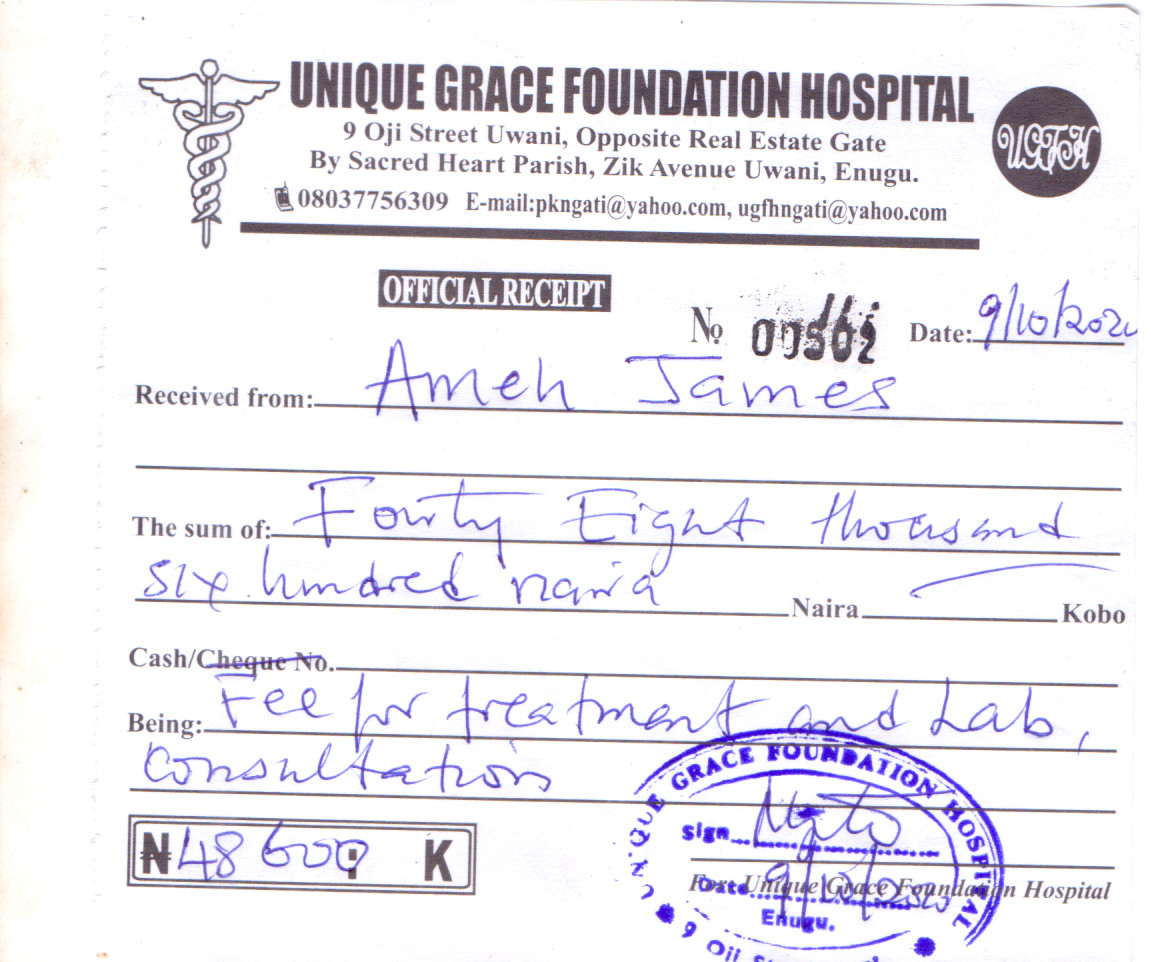 UNIQUE GRACE FOUNDATION HOSPITAL
9 Oji Street Uwani, Opposite Real Estate Gate
By Sacred Heart Parish, Zik Avenue Uwani, Enugu.
08037756309 E-mail:pkngati@yahoo.com, ugfhngati@yahoo.com
UGFH
OFFICIAL RECEIPT
No Date: 9/10/2020
Received from: Ameh James
The sum of: Fourty Eight thousand
six hundred naira Naira Kobo
Cash/Cheque No.
Being: Fee for treatment and Lab,
consultation
₦ 48600 : K
UNIQUE GRACE FOUNDATION HOSPITAL
Sign
For: Unique Grace Foundation Hospital
Date 9/10/2020
Enugu.
9 Oji